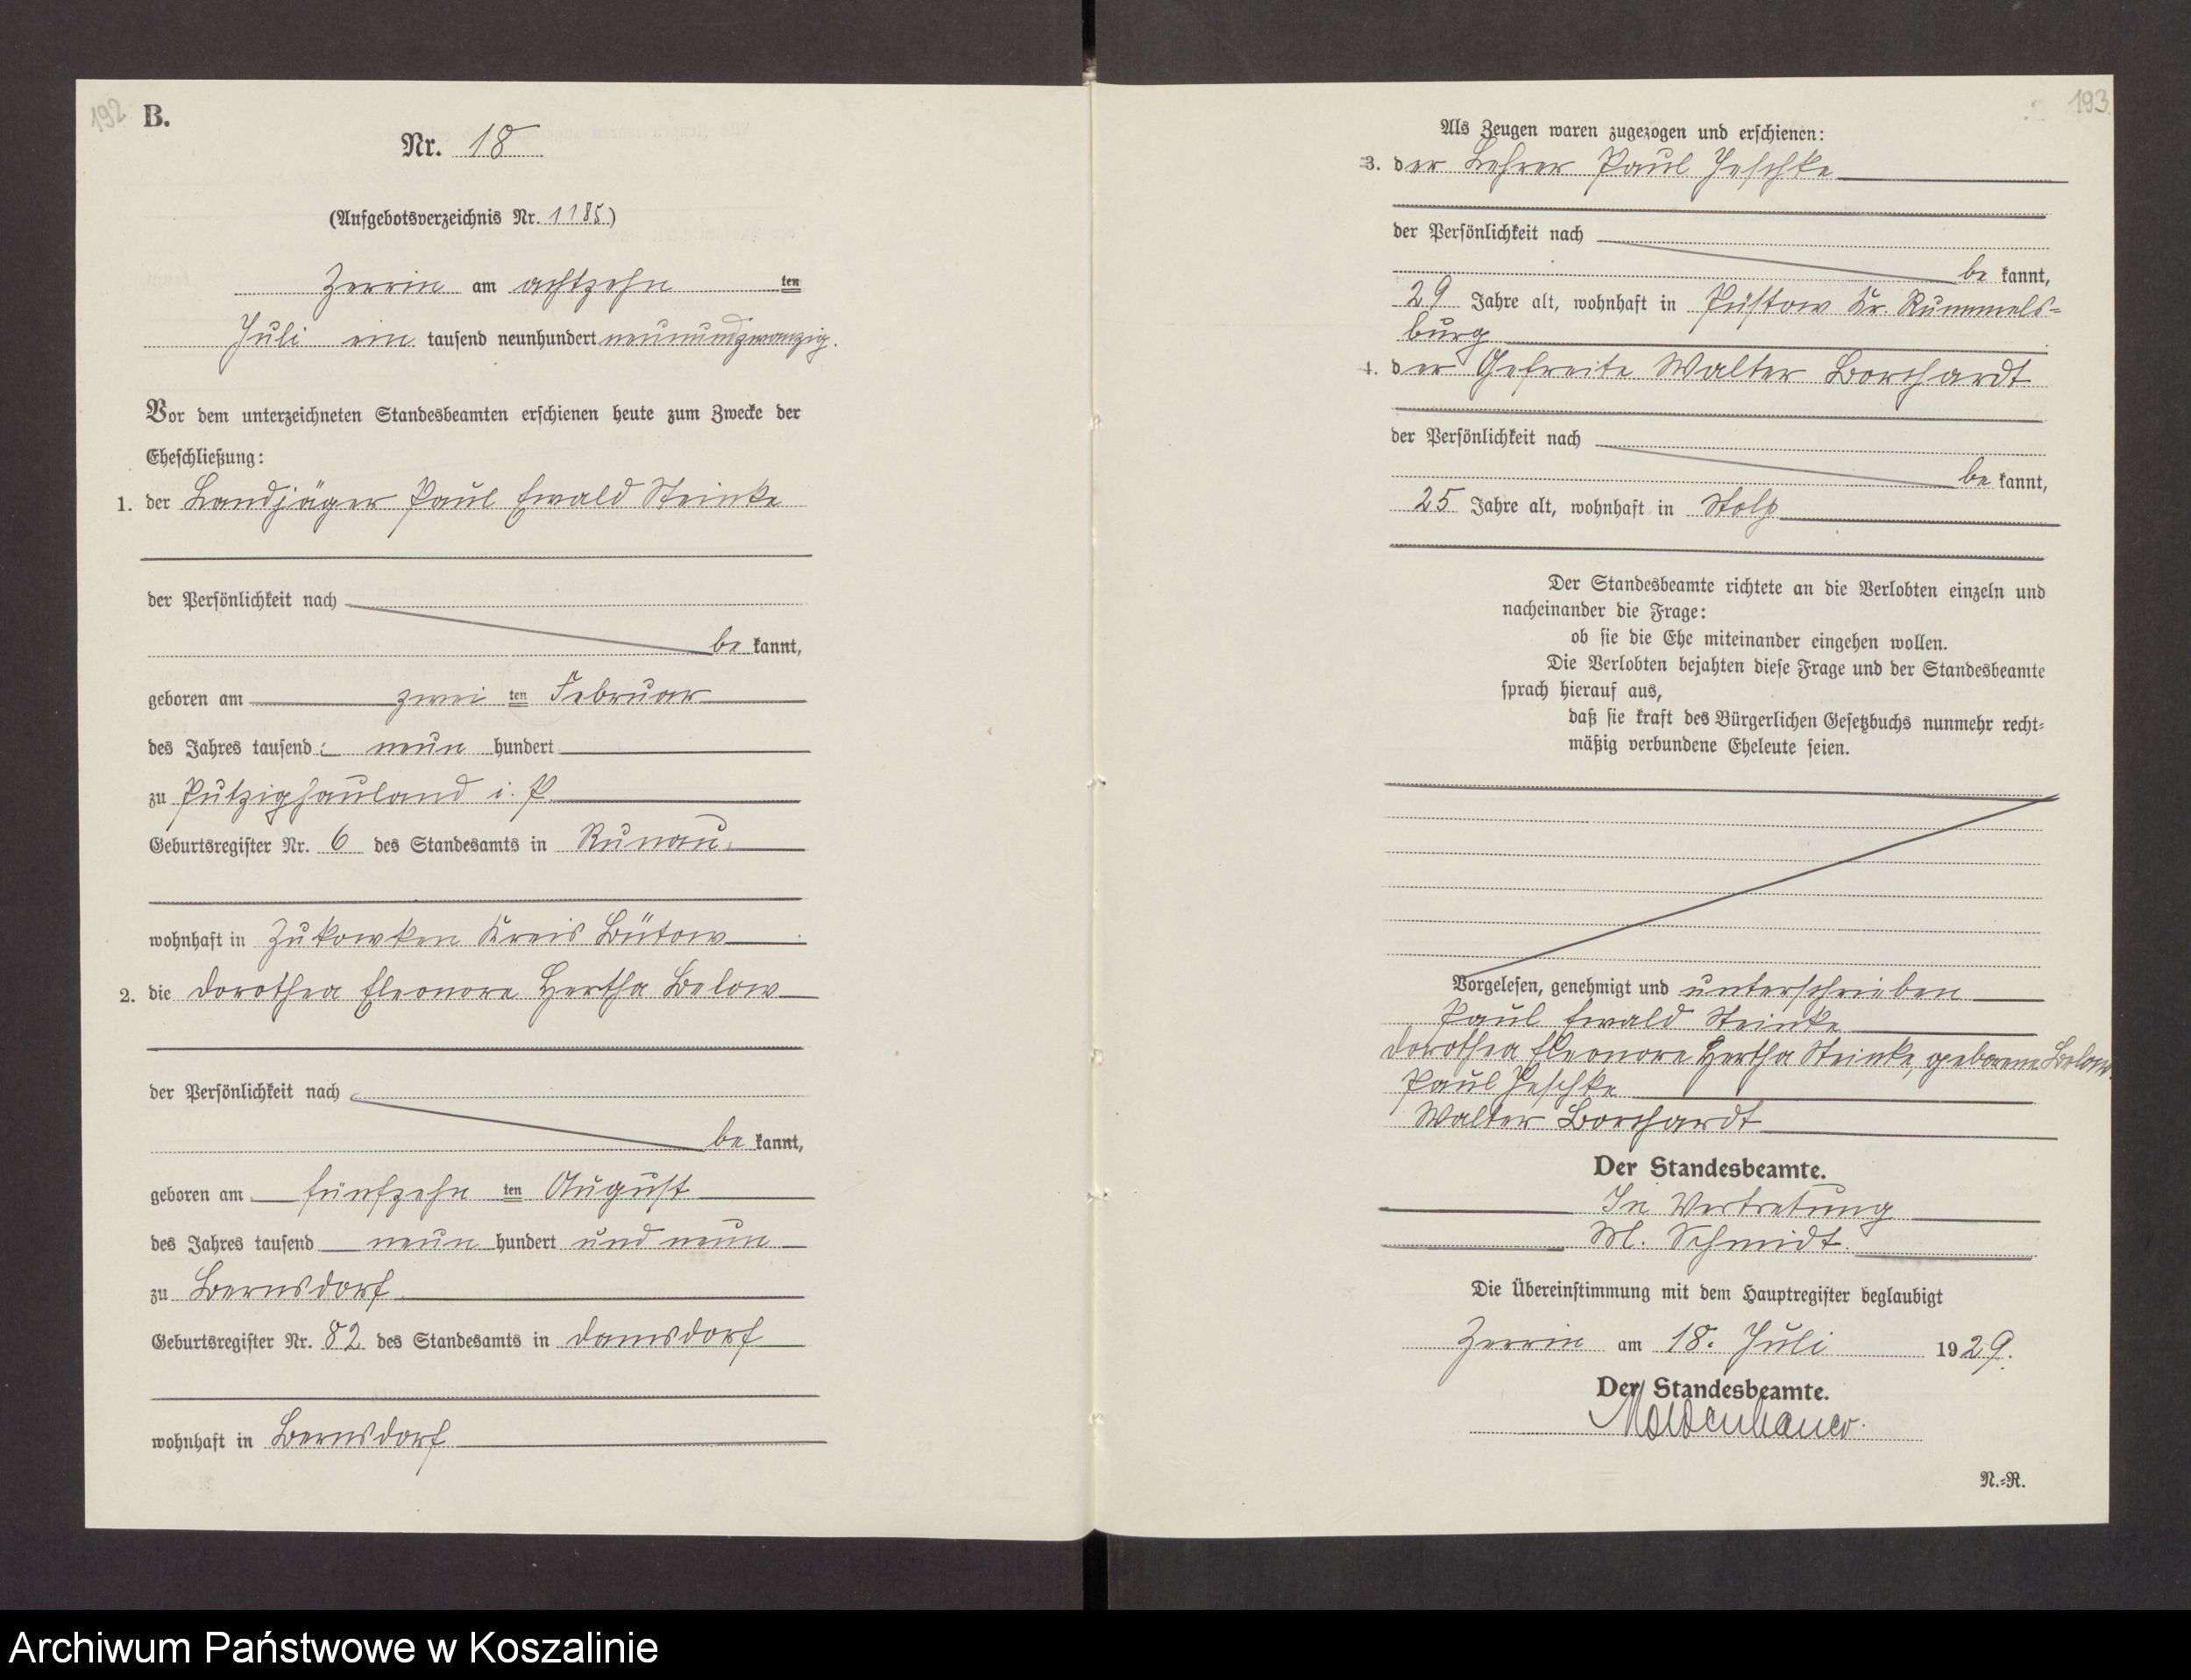 192
B.
Nr. 18
(Aufgebotsverzeichnis Nr. 1185)
Zerrin am achtzehn ten
Juli ein tausend neunhundert neunundzwanzig.
Vor dem unterzeichneten Standesbeamten erschienen heute zum Zwecke der
Eheschließung:
1. der Landjäger Paul Ewald Steinke
der Persönlichkeit nach
be kannt,
geboren am zwei ten Februar
des Jahres tausend neun hundert
zu Putzighauland i. P.
Geburtsregister Nr. 6 des Standesamts in Runau,
wohnhaft in Zukowken Kreis Bütow
2. die Dorothea Eleonore Hertha Below
der Persönlichkeit nach
be kannt,
geboren am fünfzehn ten August
des Jahres tausend neun hundert und neun
zu Bernsdorf
Geburtsregister Nr. 82 des Standesamts in Damsdorf
wohnhaft in Bernsdorf
193
Als Zeugen waren zugezogen und erschienen:
3. der Lehrer Paul Jeschke
der Persönlichkeit nach
be kannt,
29 Jahre alt, wohnhaft in Püstow Kr. Rummels-
burg
4. der Gefreite Walter Borchardt
der Persönlichkeit nach
be kannt,
25 Jahre alt, wohnhaft in Stolp
Der Standesbeamte richtete an die Verlobten einzeln und
nacheinander die Frage:
ob sie die Ehe miteinander eingehen wollen.
Die Verlobten bejahten diese Frage und der Standesbeamte
sprach hierauf aus,
daß sie kraft des Bürgerlichen Gesetzbuchs nunmehr recht-
mäßig verbundene Eheleute seien.
Vorgelesen, genehmigt und unterschrieben
Paul Ewald Steinke
Dorothea Eleonore Hertha Steinke, geborene Below.
Paul Jeschke
Walter Borchardt
Der Standesbeamte.
In Vertretung
M. Schmidt.
Die Übereinstimmung mit dem Hauptregister beglaubigt
Zerrin am 18. Juli 1929.
Der Standesbeamte.
Moldenhauer.
N.-R.
Archiwum Państwowe w Koszalinie